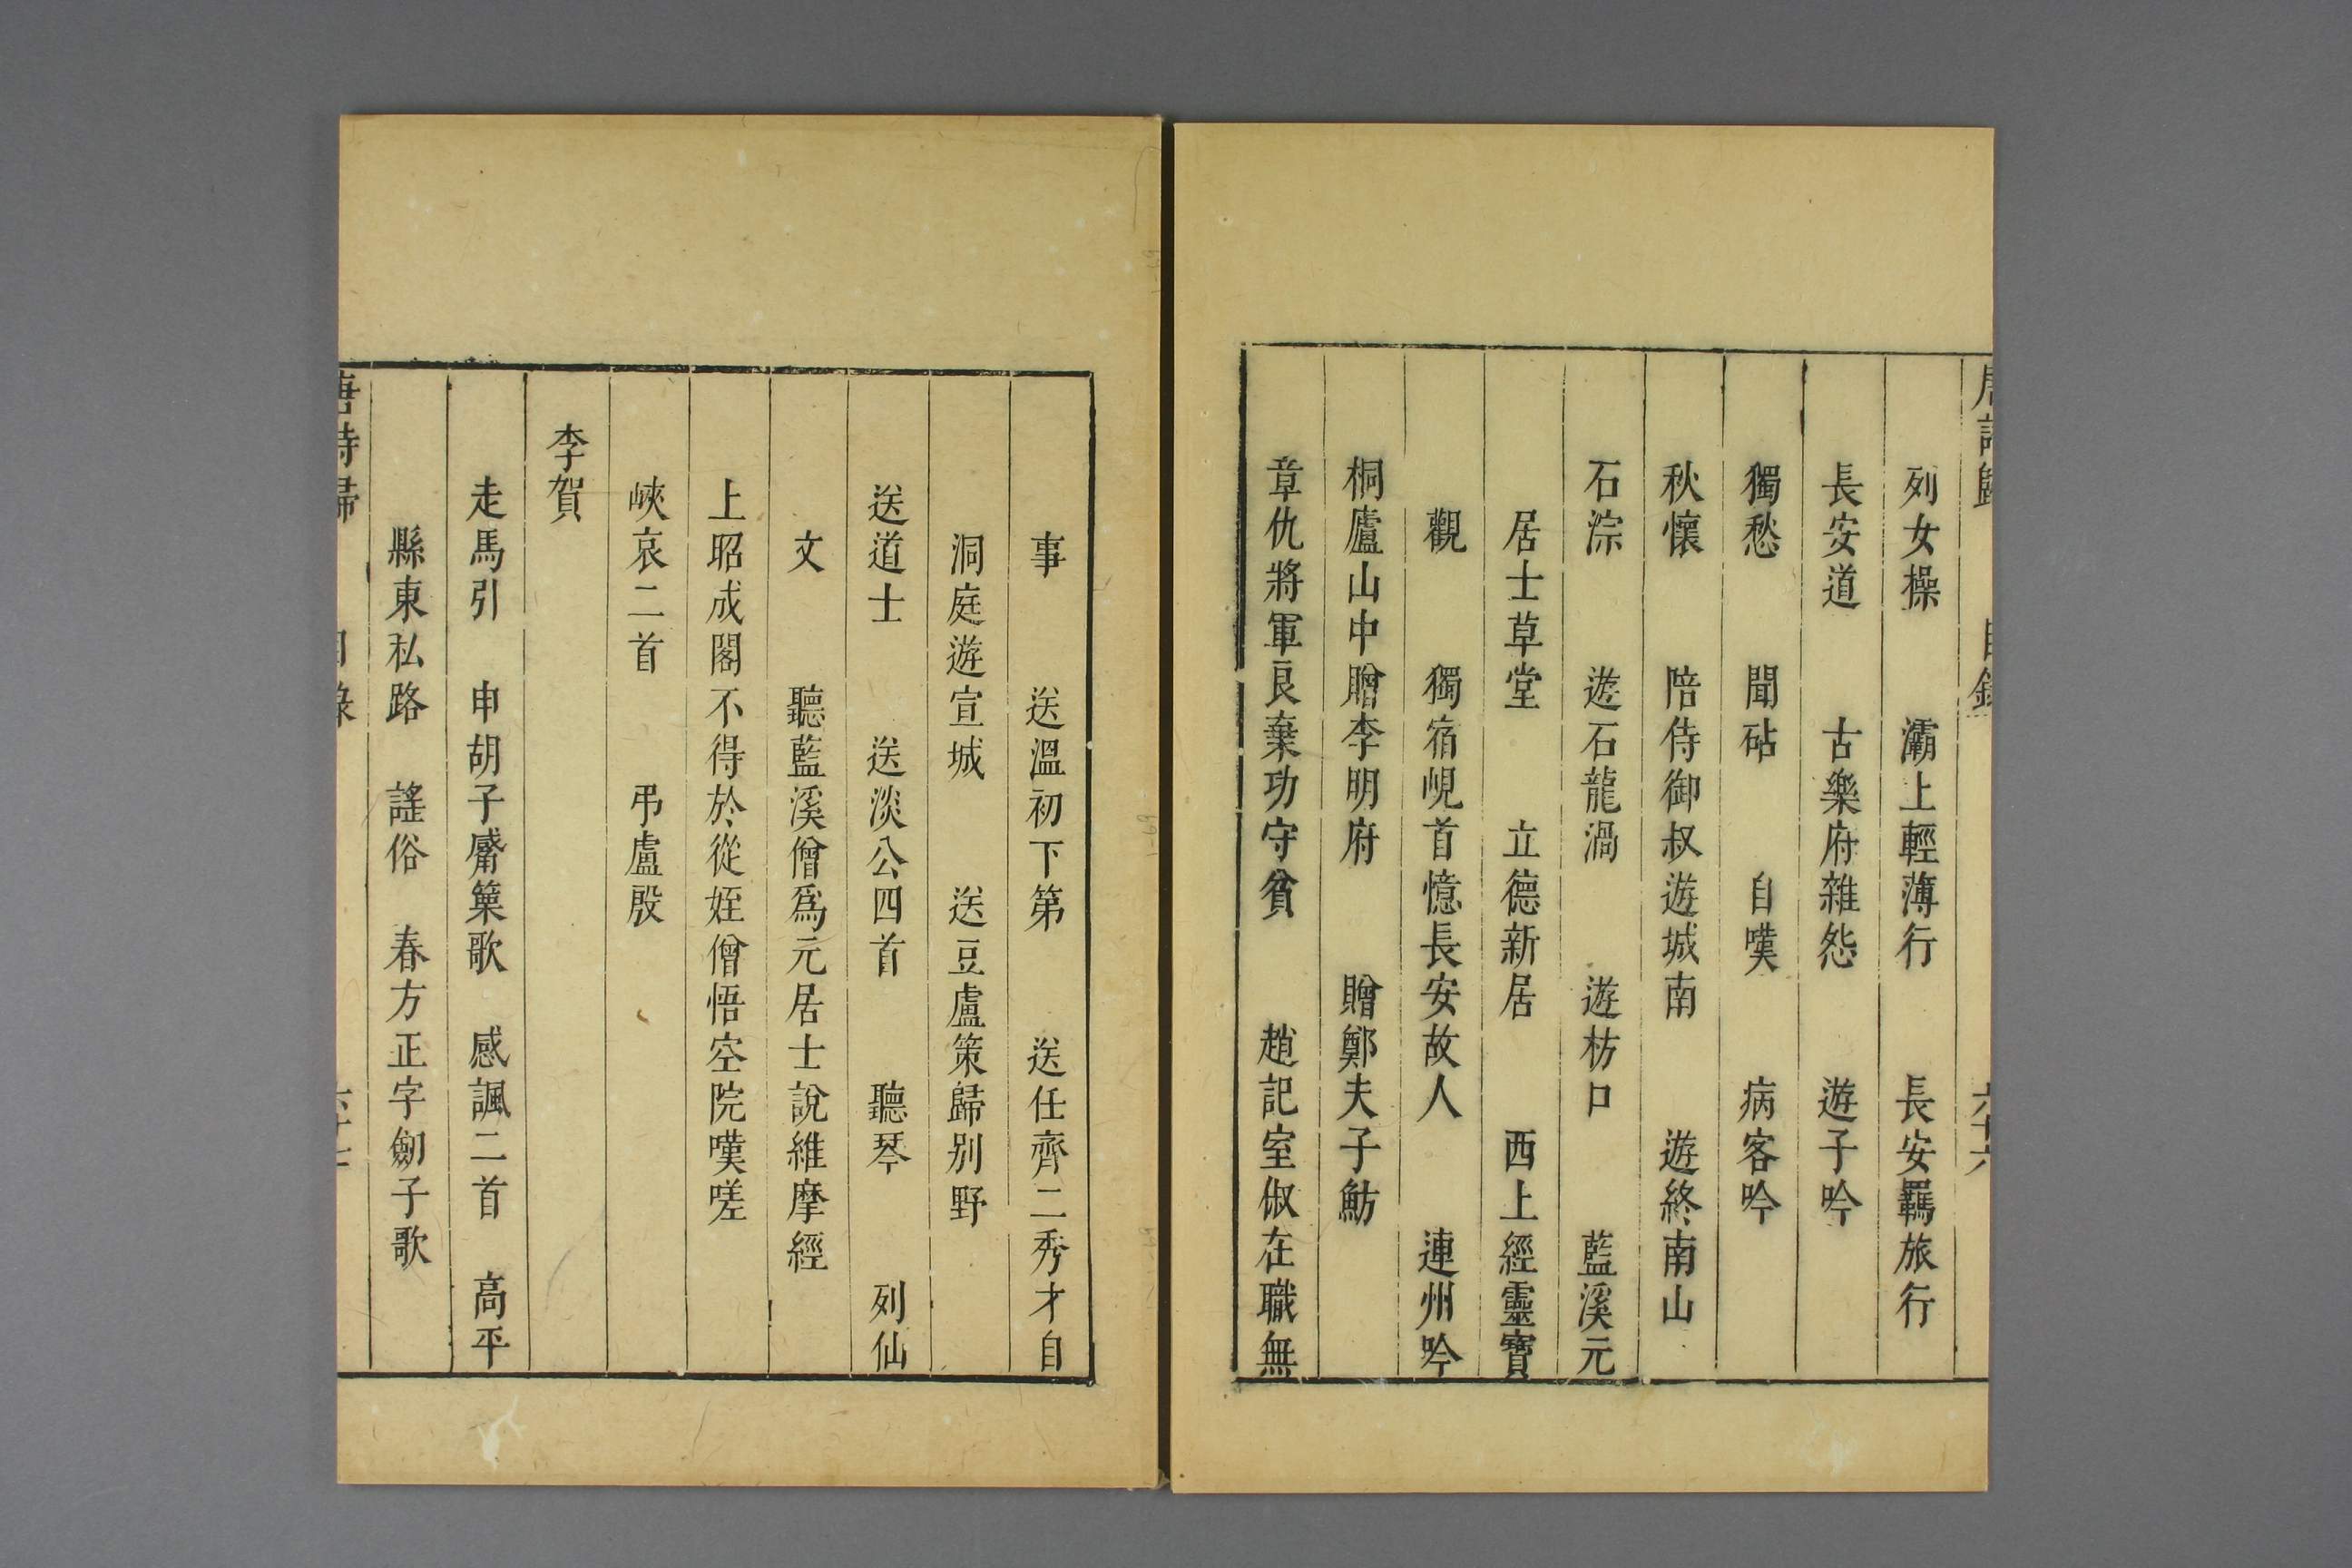 唐詩歸 目錄 六十六
列女操 灞上輕薄行 長安羈旅行
長安道 古樂府雜怨 遊子吟
獨愁 聞砧 自嘆 病客吟
秋懷 陪侍御叔遊城南 遊終南山
石淙 遊石龍渦 遊枋口 藍溪元
居士草堂 立德新居 西上經靈寶
觀 獨宿峴首憶長安故人 連州吟
桐廬山中贈李明府 贈鄭夫子魴
章仇將軍良棄功守貧 趙記室俶在職無
事 送溫初下第 送任齊二秀才自
洞庭遊宣城 送豆盧策歸別野
送道士 送淡公四首 聽琴 列仙
文 聽藍溪僧爲元居士說維摩經
上昭成閣不得於從姪僧悟空院嘆嗟
峽哀二首 弔盧殷
李賀
走馬引 申胡子觱篥歌 感諷二首 高平
縣東私路 謠俗 春方正字劒子歌
唐詩歸 目錄 六十七